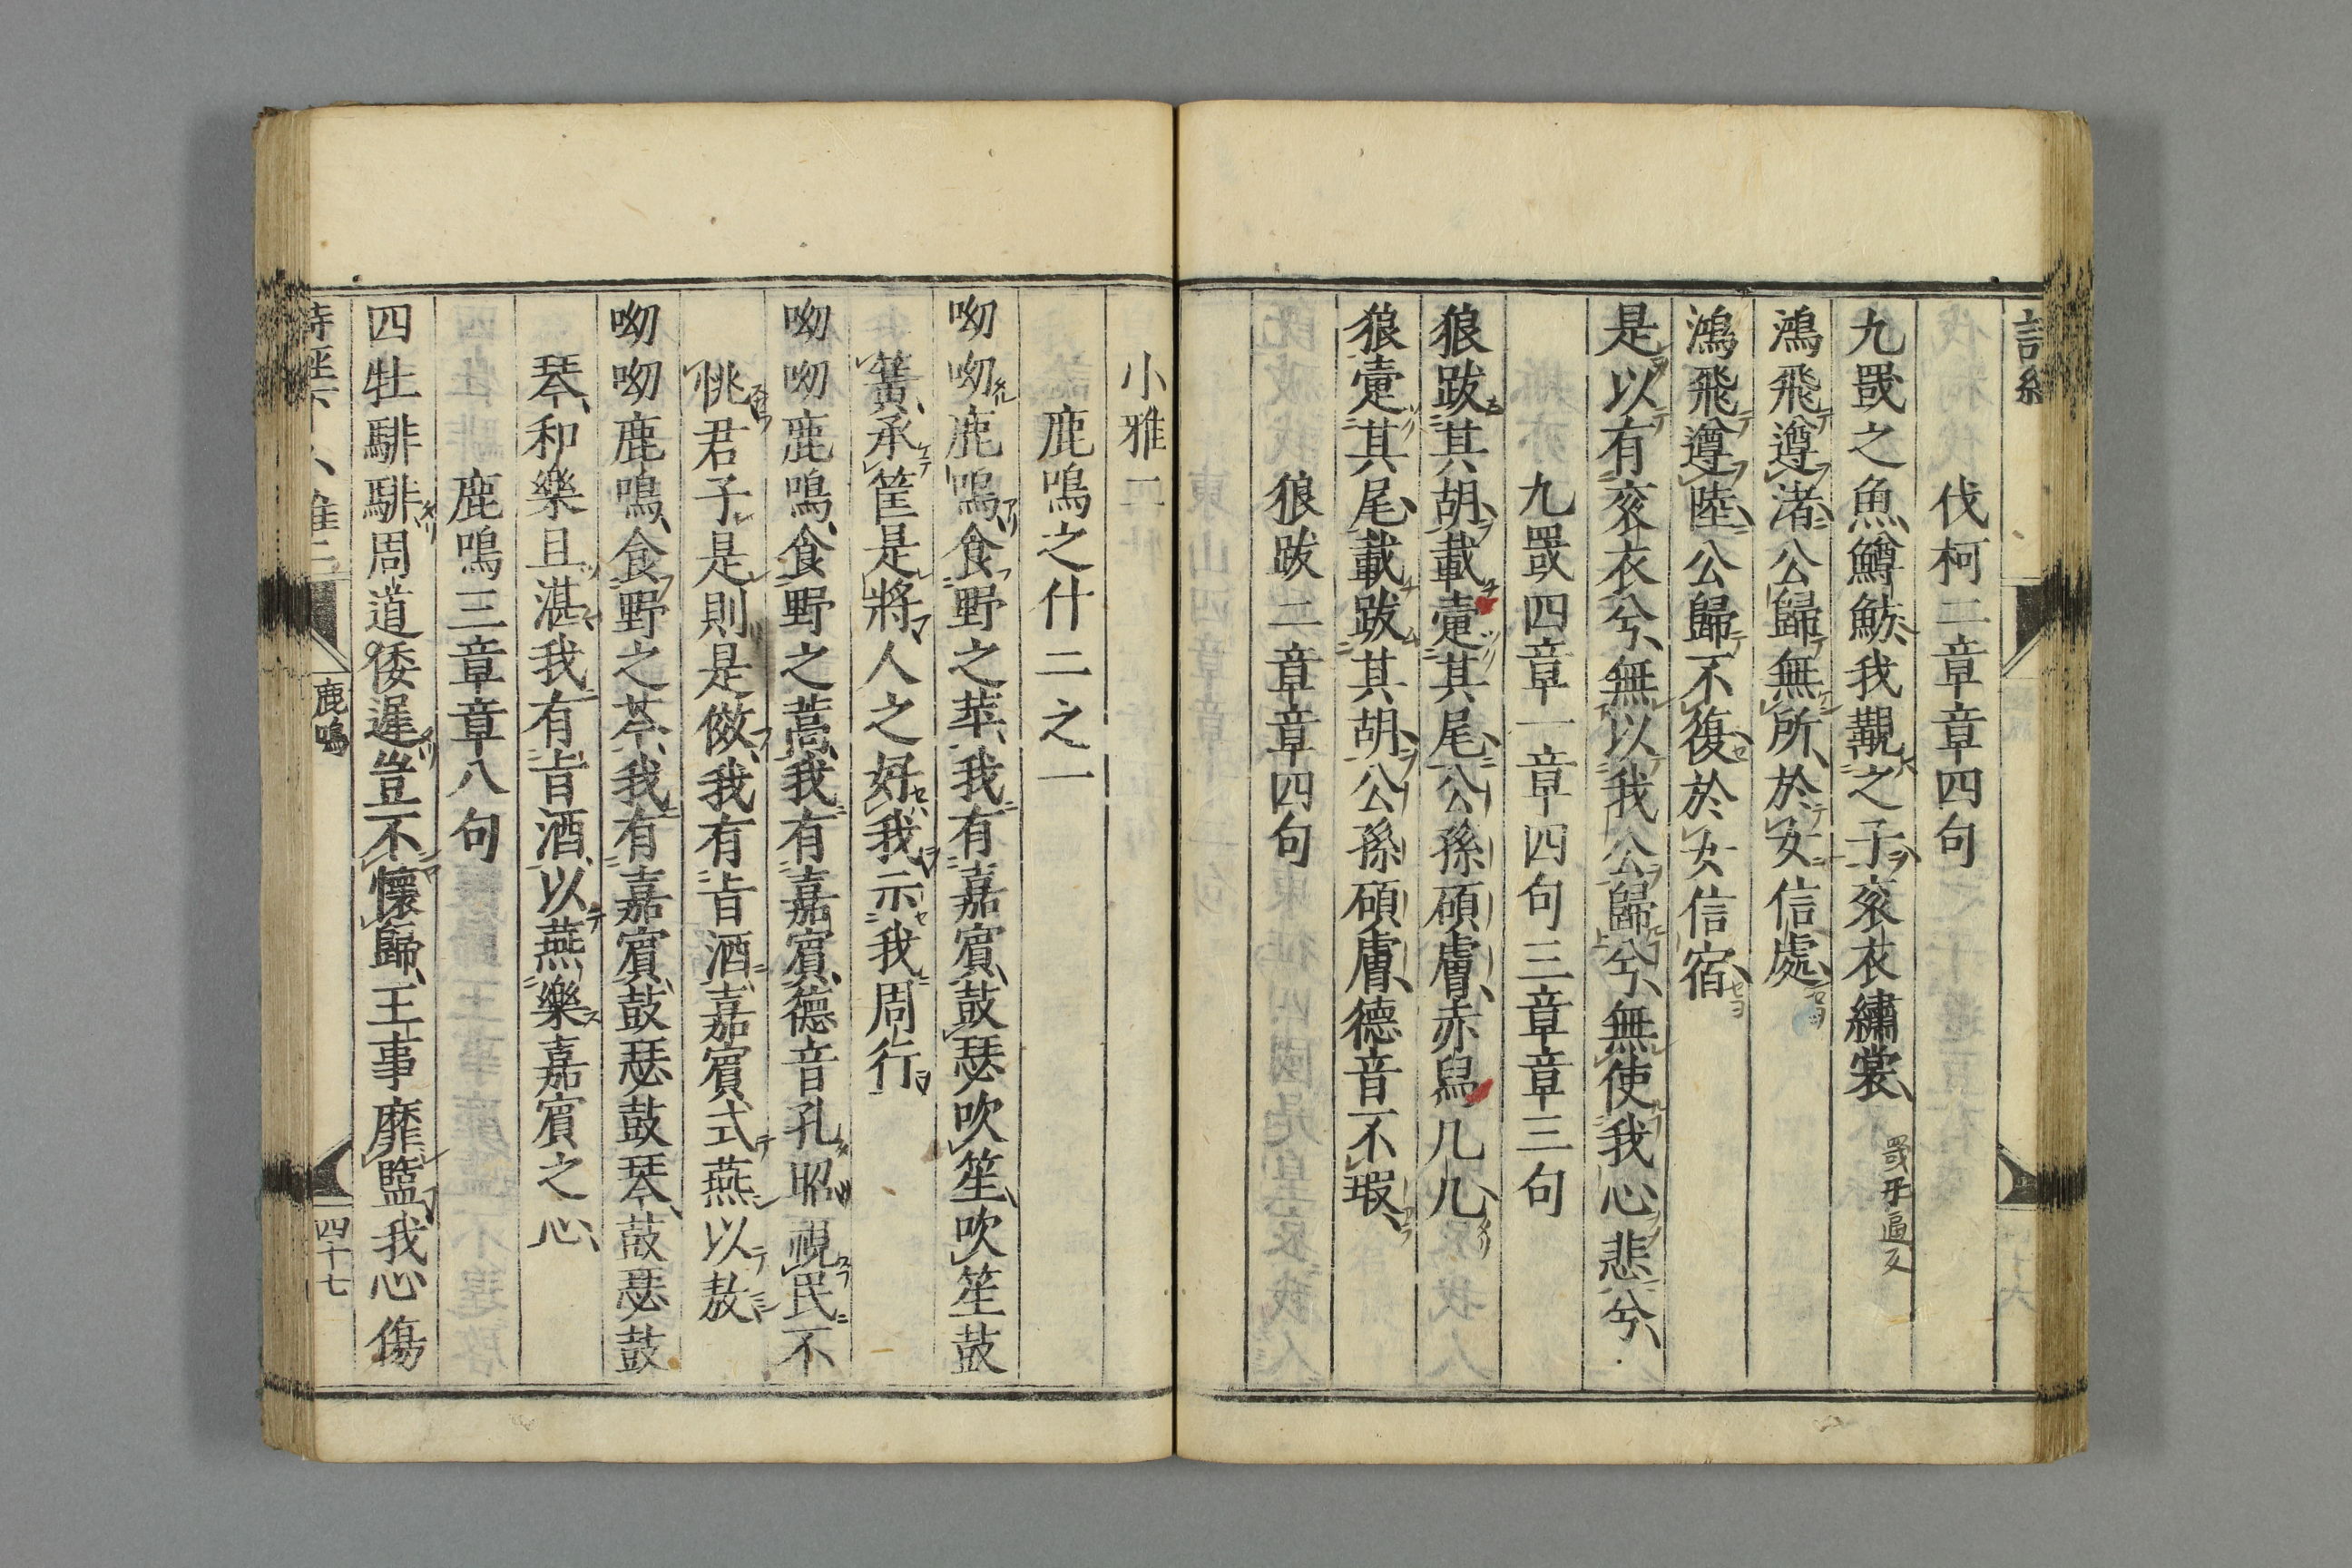 伐柯二章章四句
九罭之魚鱒魴我覯之子袞衣繡裳
罭于逼反
鴻飛遵渚公歸無所於女信處
鴻飛遵陸公歸不復於女信宿
是以有袞衣兮無以我公歸兮無使我心悲兮
九罭四章一章四句三章章三句
狼跋其胡載疐其尾公孫碩膚赤舄几几
狼疐其尾載跋其胡公孫碩膚德音不瑕
狼跋二章章四句
小雅二
鹿鳴之什二之一
呦呦鹿鳴食野之苹我有嘉賓鼓瑟吹笙吹笙鼓
簧承筐是將人之好我示我周行
呦呦鹿鳴食野之蒿我有嘉賓德音孔昭視民不
恌君子是則是傚我有旨酒嘉賓式燕以敖
呦呦鹿鳴食野之芩我有嘉賓鼓瑟鼓琴鼓瑟鼓
琴和樂且湛我有旨酒以燕樂嘉賓之心
鹿鳴三章章八句
四牡騑騑周道倭遲豈不懷歸王事靡盬我心傷
鹿鳴
四十七